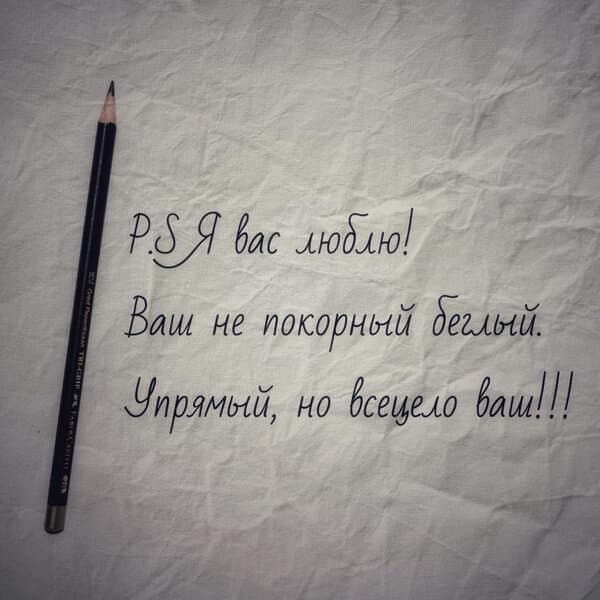 P.S Я вас люблю!
Ваш не покорный беглый.
Упрямый, но всецело ваш!!!